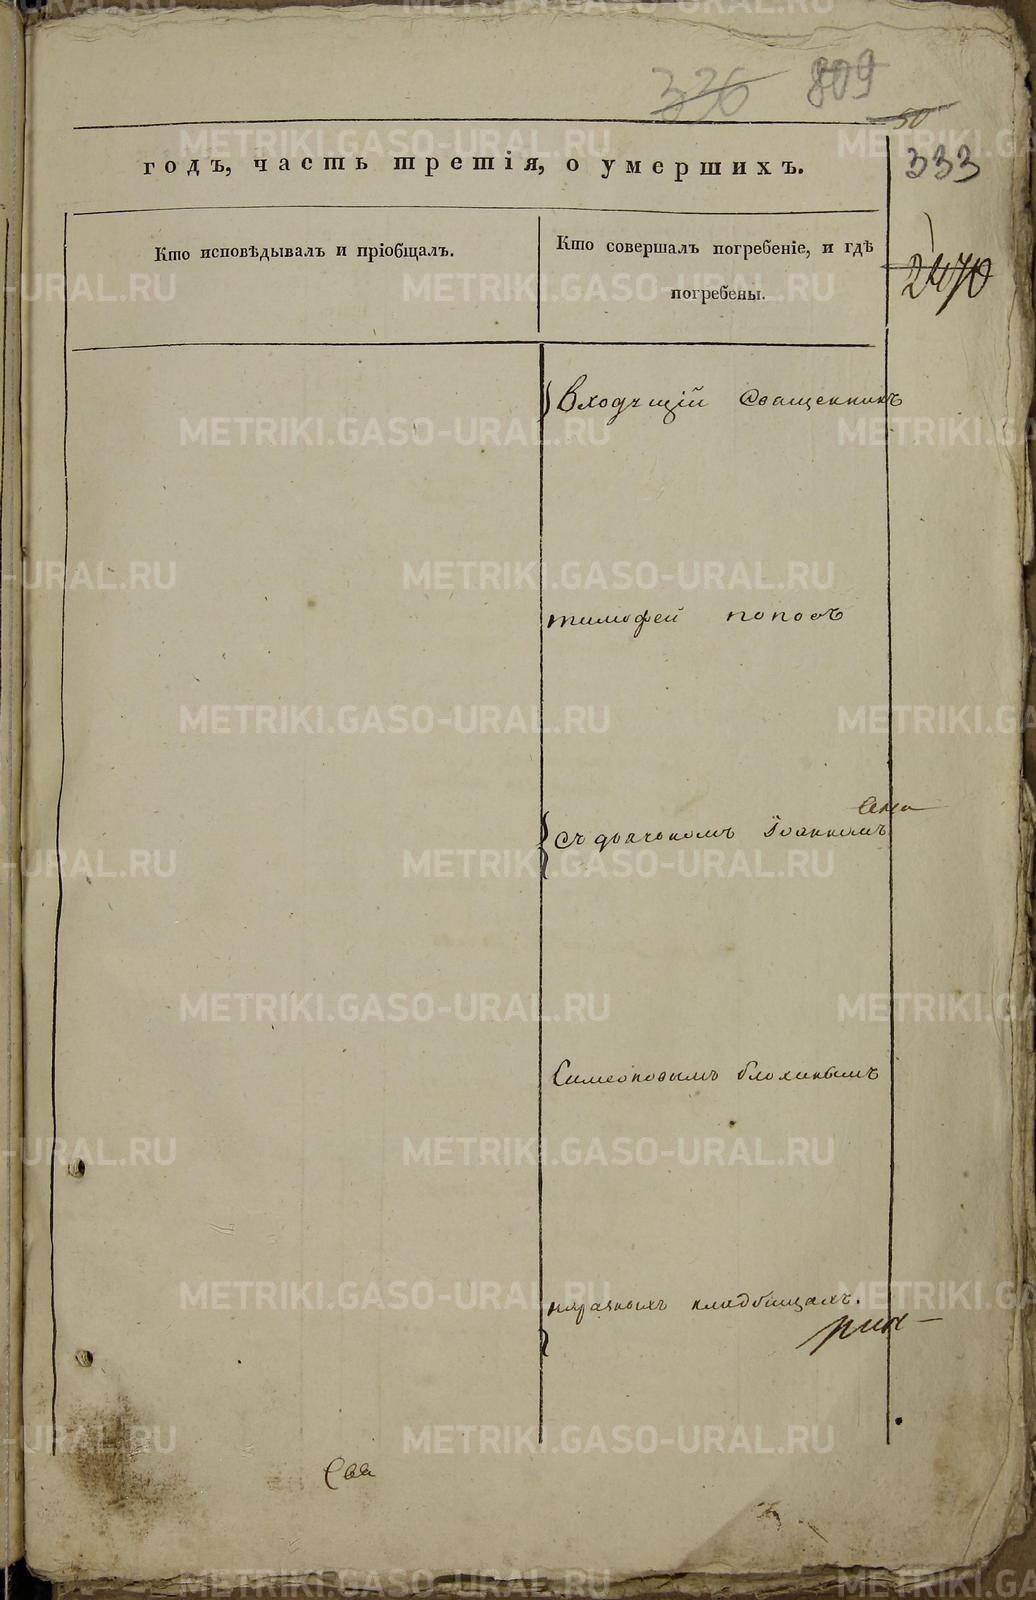 336 809
50
годъ, часть третія, о умершихъ.
333
Кто исповѣдывалъ и пріобщалъ.
Кто совершалъ погребеніе, и гдѣ
погребены.
2470
Входящій Священникъ
тимофей поповъ
Съ дьячкомъ Іоанномъ
Симеоновымъ блохинымъ
на разныхъ кладбищахъ.
METRIKI.GASO-URAL.RU